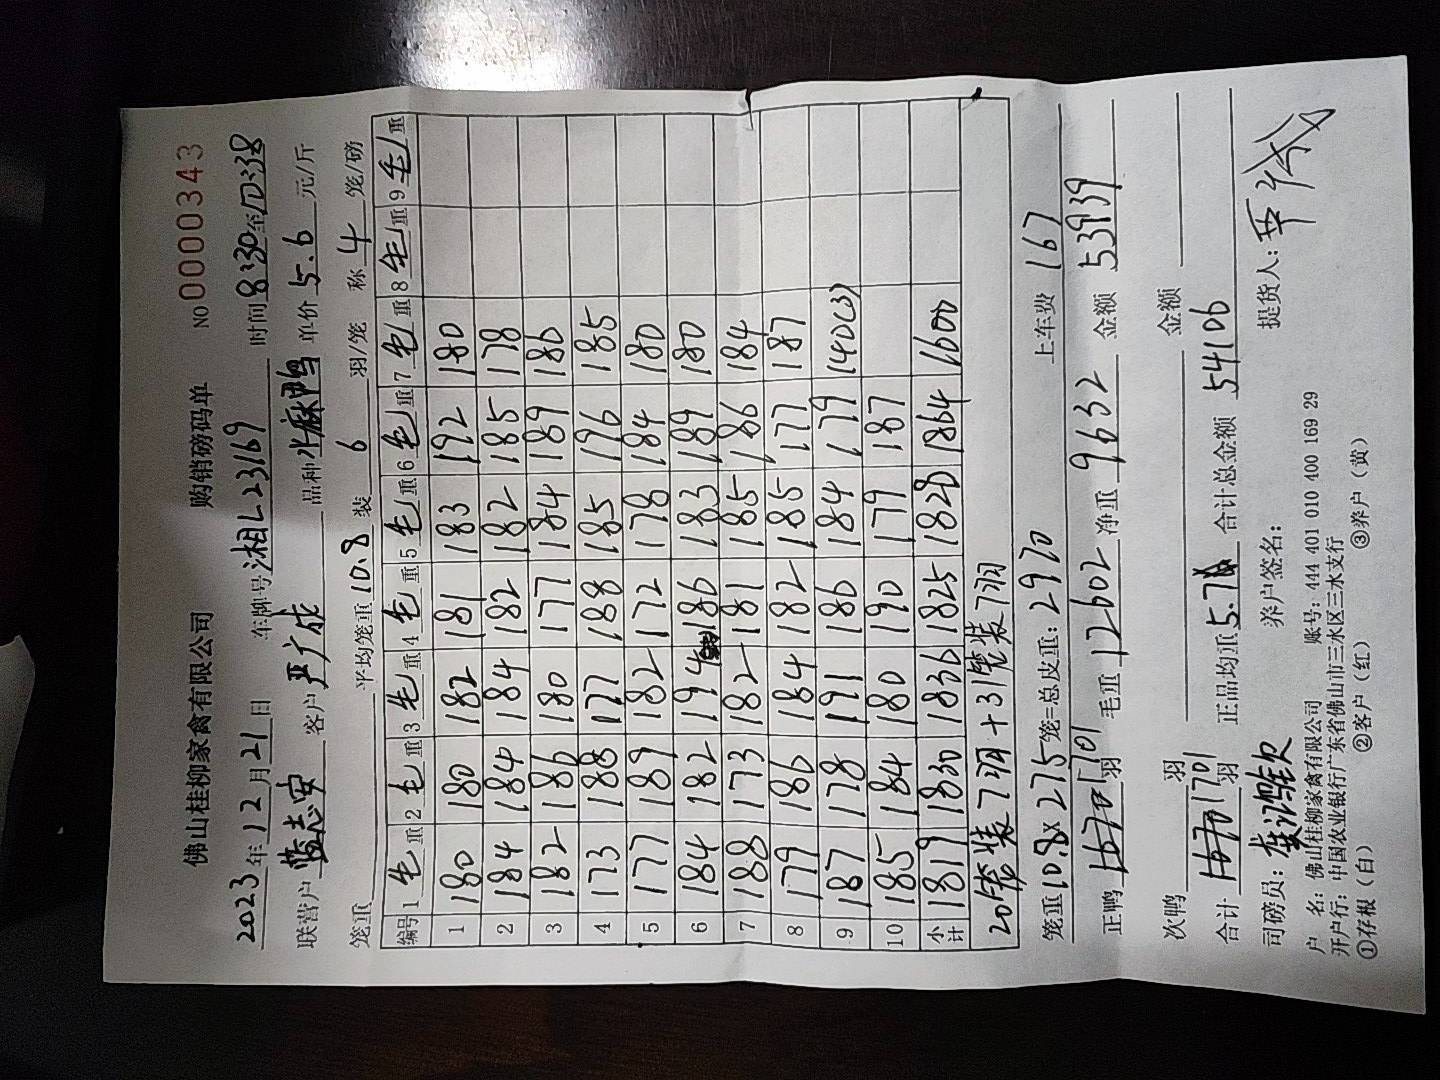 佛山桂柳家禽有限公司 购销磅码单 NO 0000343
2023年12月21日 车牌号湘L23169 时间8:30至10:38
联营户 蓝志安 客户 严广成 品种 水麻鸭 单价 5.6 元/斤
笼重 平均笼重10.8装 6 羽/笼 称 4 笼/磅
编号 1毛重 2毛重 3毛重 4毛重 5毛重 6毛重 7毛重 8毛重 9毛重
1 180 180 182 181 183 192 180
2 184 184 184 182 182 185 178
3 182 186 180 177 184 189 186
4 173 188 177 188 185 196 185
5 177 189 182 172 178 184 180
6 184 182 194 186 183 189 180
7 188 173 182 181 185 186 184
8 179 186 184 182 185 177 187
9 187 178 191 186 184 179 140(3)
10 185 184 180 190 179 187
小计 1819 1830 1836 1825 1828 1864 1600
20笼装7羽+31笼装7羽
笼重10.8×275笼=总皮重:2970 上车费 167
正鸭 1670 1701羽 毛重 12602 净重 9632 金额 53939
次鸭 羽 金额
合计 1670 1701羽 正品均重5.7 合计总金额 54106
司磅员: 养户签名: 提货人:
户 名:佛山桂柳家禽有限公司 账号:444 401 010 400 169 29
开户行:中国农业银行广东省佛山市三水区三水支行
①存根(白) ②客户(红) ③养户(黄)